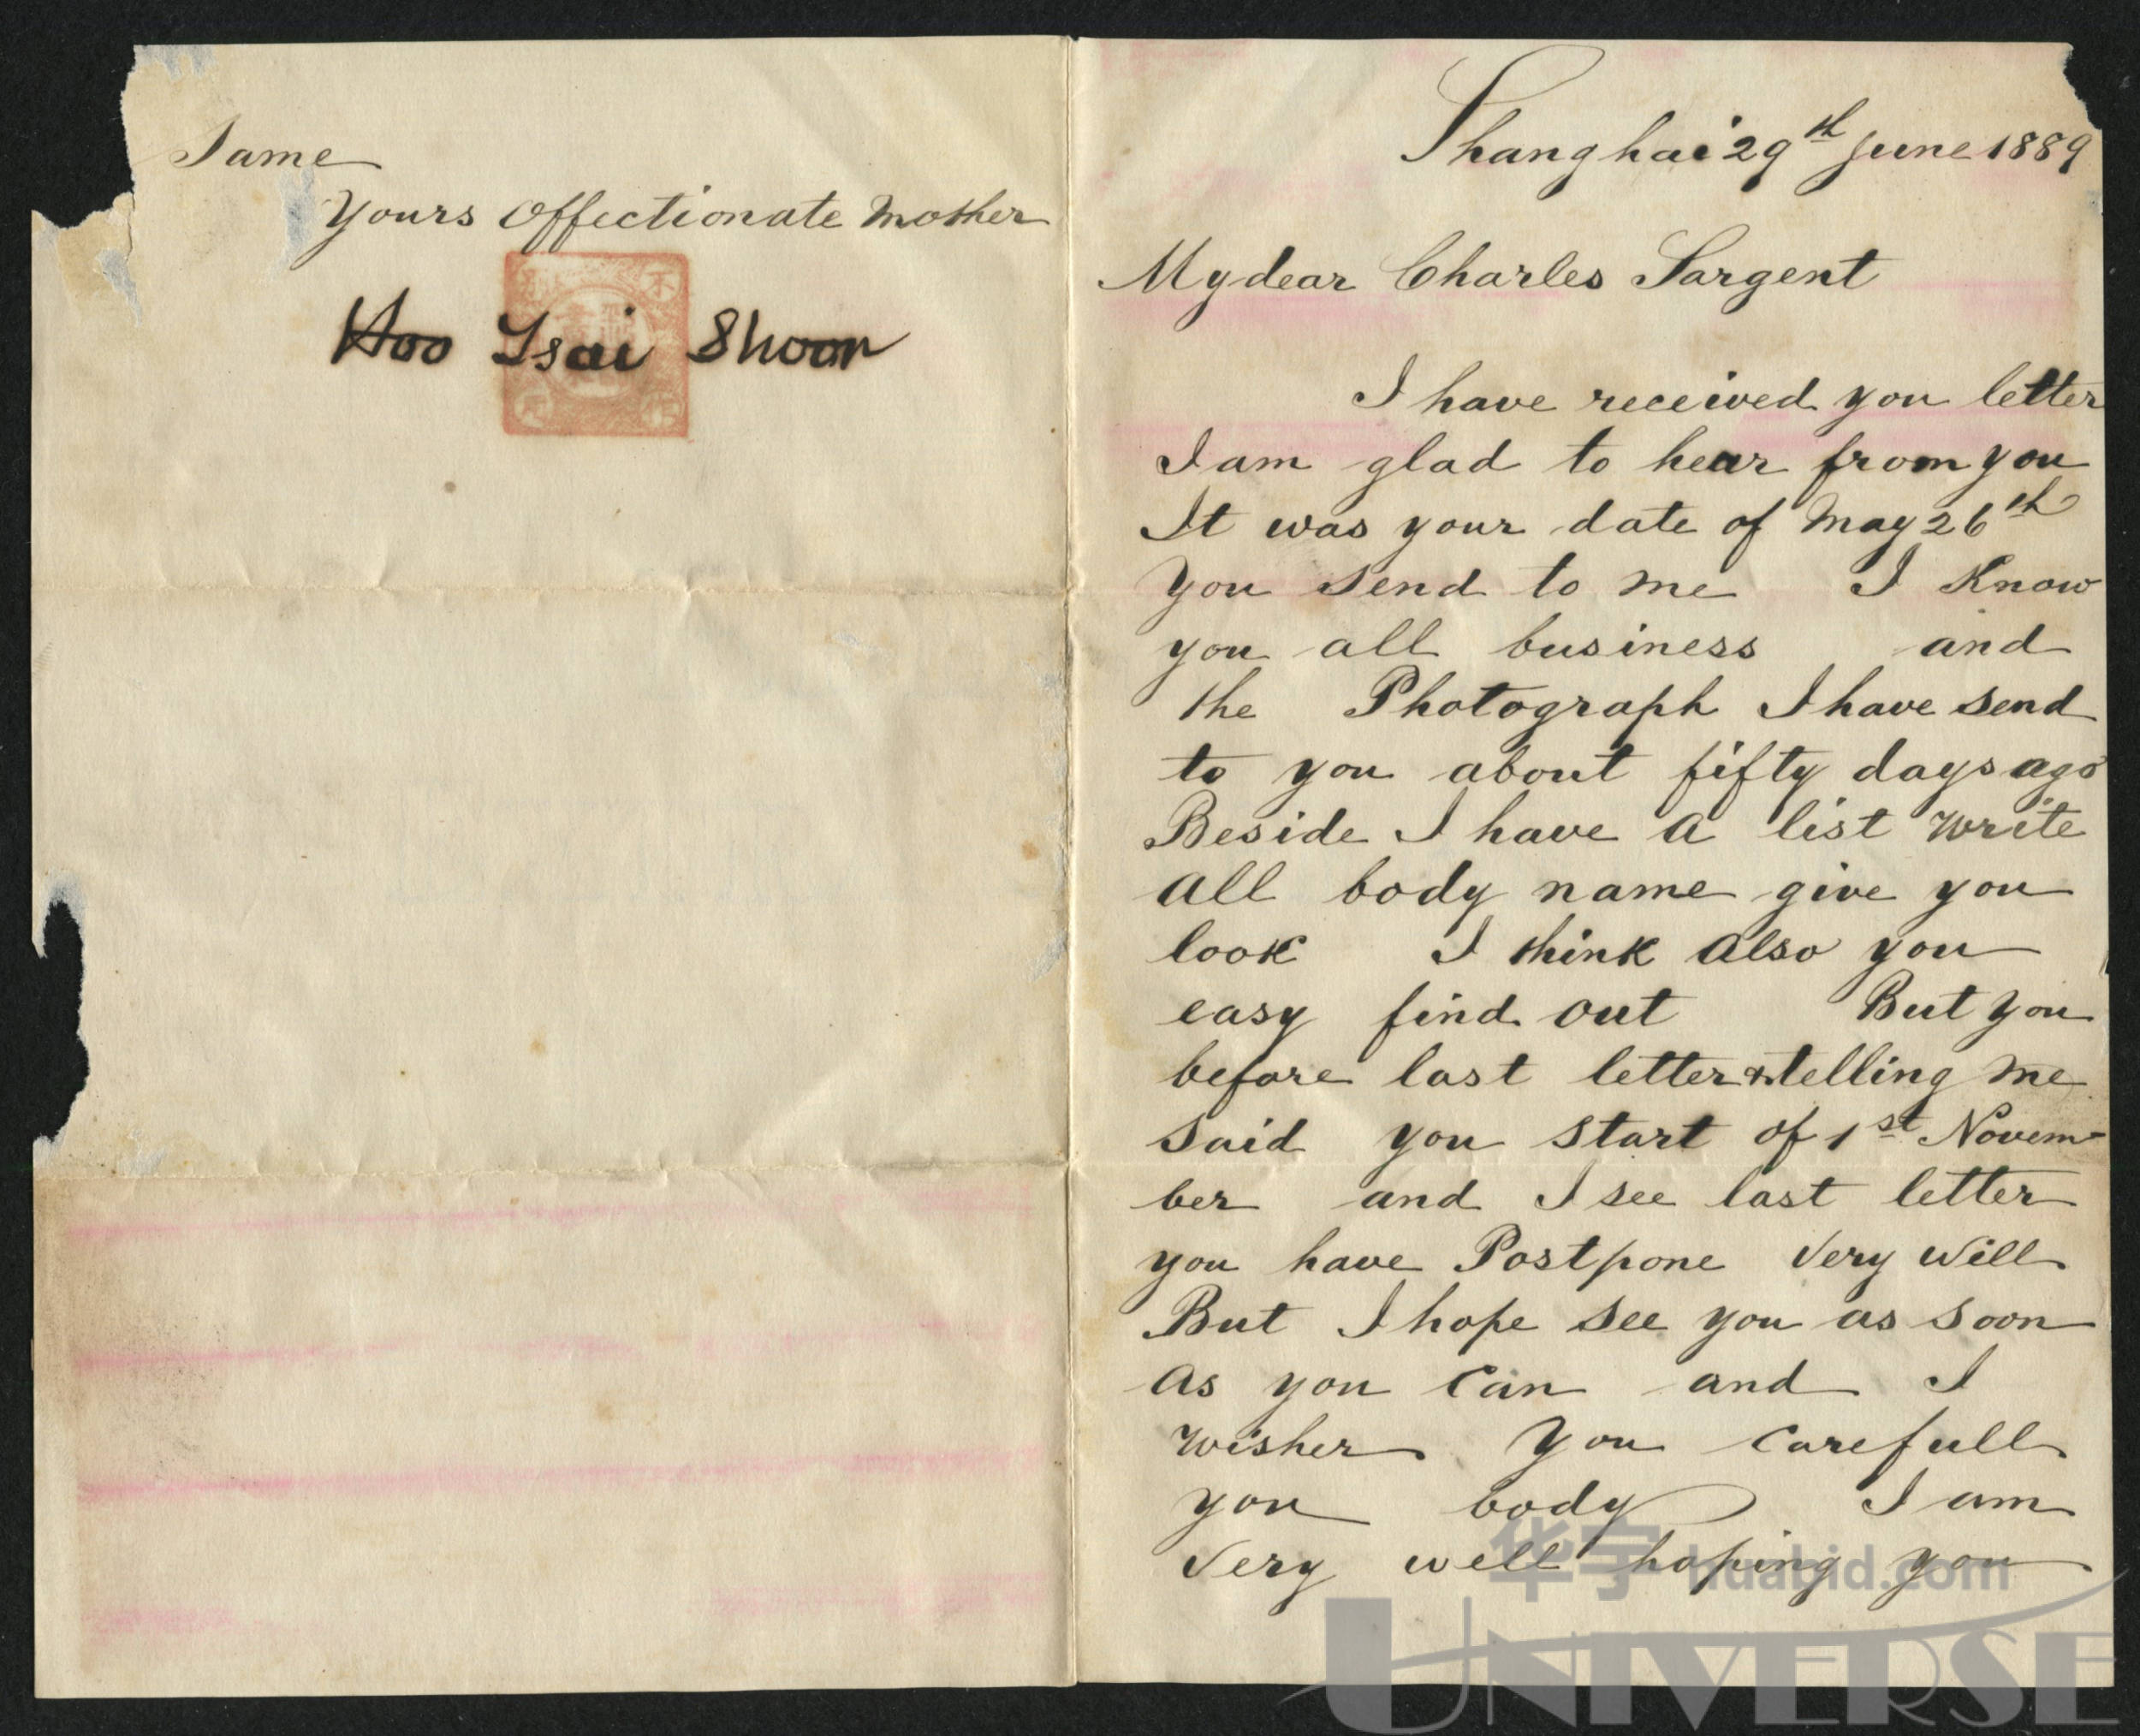 Shanghai 29th June 1889
My dear Charles Sargent
I have received you letter
I am glad to hear from you
It was your date of May 26th
you send to me I Know
you all business and
the Photograph I have send
to you about fifty days ago
Beside I have a list write
all body name give you
look I think also you
easy find out But you
before last letter telling me
said you start of 1st Novem-
ber and I see last letter
you have Postpone Very Will
But I hope see you as soon
as you can and I
wisher you carefull
you body I am
Very well hoping you
Same
Yours Offectionate Mother
Hoo Tsai Shoon
华宇 huabid.com
UNIVERSE